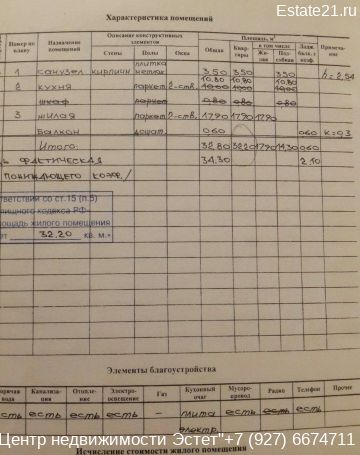 Estate21.ru
Характеристика помещений
Номер по плану
Назначение помещений
Описание конструктивных элементов
Стены
Полы
Окна
Площадь, м²
Общая
Квартиры
в том числе
Жилая
Подсобная
Лодж. балк. с коэф.
Примечание
плитка
1 санузел кирпичн метлах 3.50 3.50 3.50 h=2.54
10.80 10.80 10.80
2 кухня паркет 2-ств.
шкаф паркет 0.80 0.80 0.80
3 жилая паркет 2-ств. 17.90 17.90 17.90
Балкон дощат. 0.60 0.60 к=0.3
Итого: 32.80 32.20 17.90 14.30 0.60
фактическая 34.30 2.10
понижающего коэф./
ответствии со ст.15 (п.5)
лищного кодекса РФ
ощадь жилого помещения
ет 32.20 кв. м.»
Элементы благоустройства
орячая вода
Канализация
Отопление
Электроосвещение
Газ
Кухонный очаг
Мусоропровод
Радио
Телефон
Прочее
есть есть есть есть – плита есть есть есть
электр.
Центр недвижимости Эстет"+7 (927) 6674711
Исчисление стоимости жилого помещения